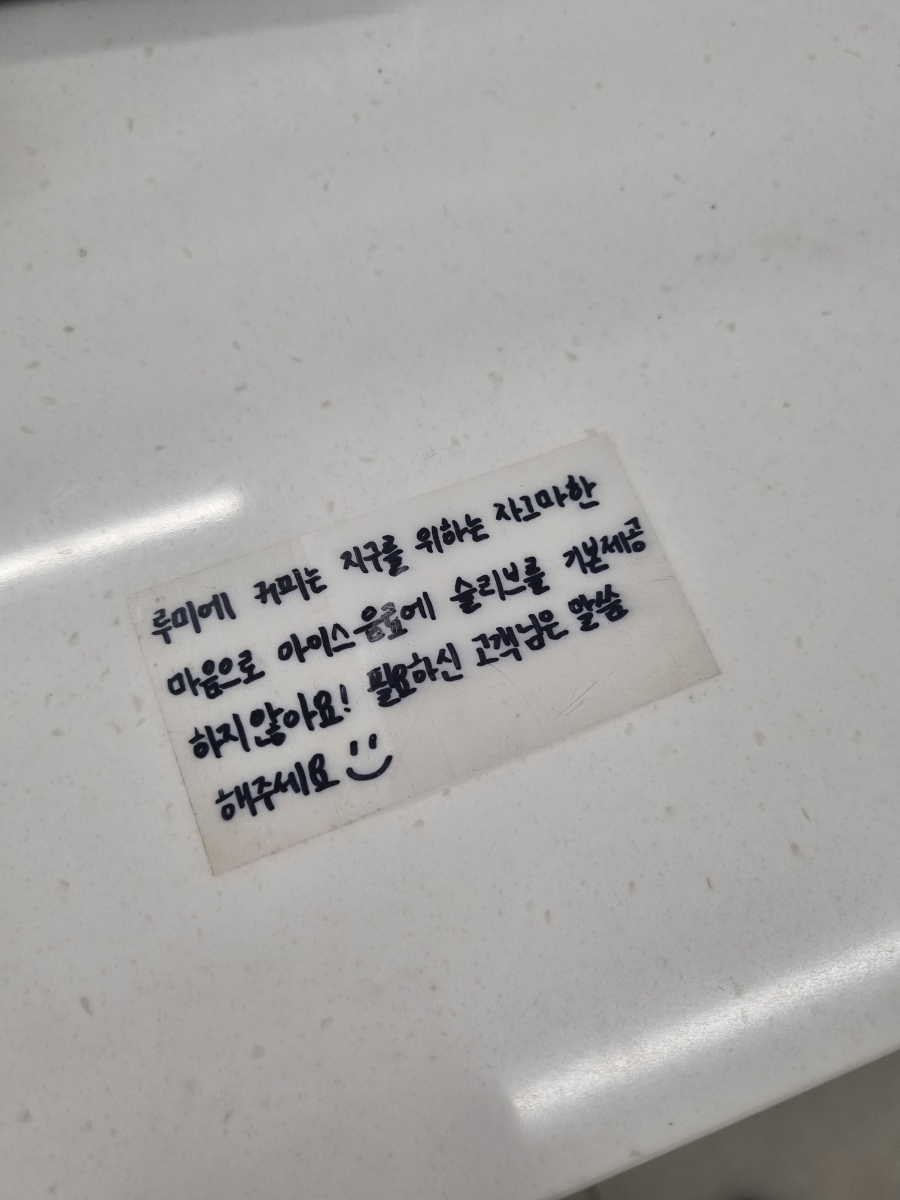 루미에 커피는 지구를 위하는 자그마한
마음으로 아이스 음료에 슬리브를 기본제공
하지않아요! 필요하신 고객님은 말씀
해주세요